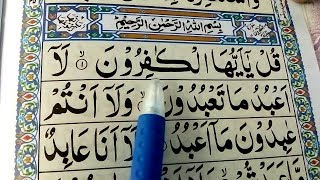 بِسْمِ اللهِ الرَّحْمٰنِ الرَّحِيْمِ
قُلْ يٰۤاَيُّهَا الْكٰفِرُوْنَ ۙ۝۱ لَاۤ
اَعْبُدُ مَا تَعْبُدُوْنَ ۙ وَلَاۤ اَنْتُمْ
عٰبِدُوْنَ مَاۤ اَعْبُدُ ۚ وَلَاۤ اَنَا عَابِدٌ